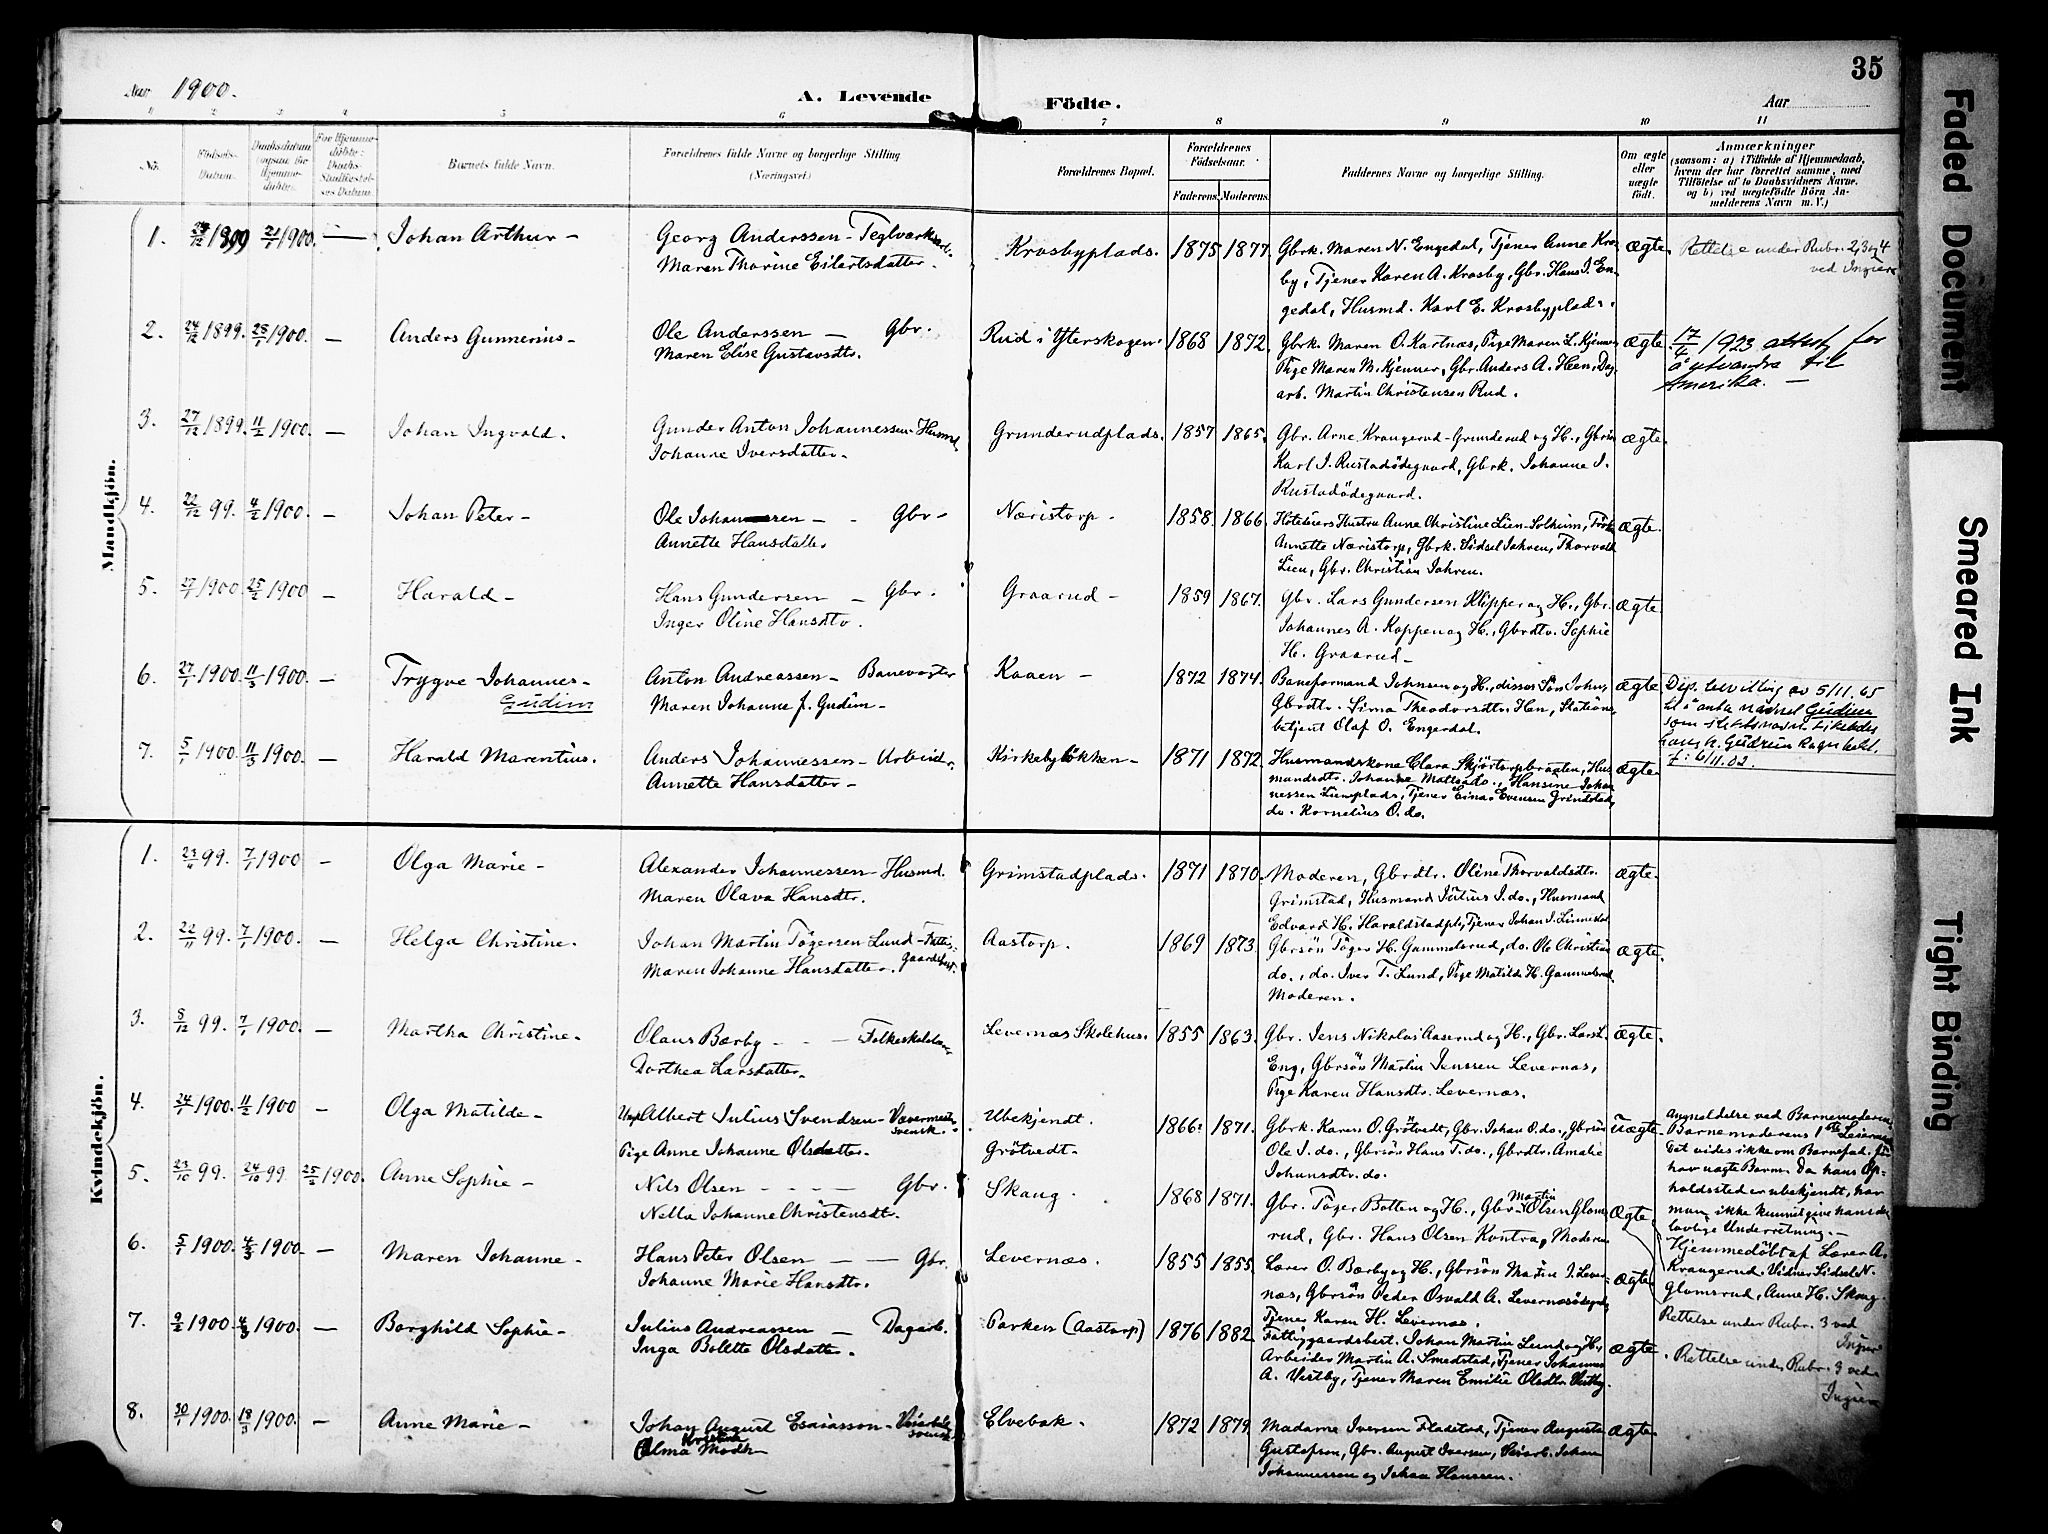 Aar 1900.
A. Levende Födte.
35
Aar
1 2 3 4 5 6 7 8 9 10 11
No.
Födsels-Datum.
Daabsdatum (ogsaa for Hjemmedöbte).
For Hjemmedöbte: Daabs-Stadfæstelses Datum.
Barnets fulde Navn.
Forældrenes fulde Navne og borgerlige Stilling
(Næringsvei)
Forældrenes Bopæl.
Forældrenes Födselsaar.
Faderens. Moderens.
Faddernes Navne og borgerlige Stilling.
Om ægte eller uægte födt.
Anmærkninger
(saasom: a) i Tilfælde af Hjemmedaab, hvem der har forrettet samme, med Tilföielse af to Daabsvidners Navne, og b) ved uægtefödte Börn Anmelderens Navn m. V.)
Mandkjön.
1. 1899 21/1 1900. — Johan Arthur -
Georg Anderssen - Teglværksarb.
Maren Thorine Eilertsdatter.
Krosbyplads. 1875 1877.
Gbrk. Maren N. Engedal, Tjener Anne Kros-
by, Tjener Karen A. Krosby, Gbr. Hans I. En-
gedal, Husmd. Karl E. Krosbyplads.
ægte.
Rettelse under Rubr. 2, 3 og 4
ved Ingier
2. 24/12 1899. 28/1 1900. — Anders Gunnerius -
Ole Anderssen — Gbr.
Maren Elise Gustavsdtr.
Rud i Ytterskogen. 1868 1872.
Gbrk. Maren O. Kartnæs, Pige Maren L. Kjenner,
Pige Maren M. Kjenner, Gbr. Anders A. Heen, Dag-
arb. Martin Christensen Rud.
ægte.
17/4 1923 attest for
å utvandre til
Amerika. —
3. 27/12 1899. 11/2 1900. — Johan Ingvald.
Gunder Anton Johannessen - Husmd
Johanne Iversdatter -
Grunderudplads. 1857 1865.
Gbr. Arne Krangerud - Grunderud og H., Gbrsön
Karl I. Rustadödegaard, Gbrk. Johanne I.
Rustadödegaard.
ægte.
4. 22/12 99. 4/2 1900. — Johan Peter -
Ole Johannessen — Gbr -
Annette Hansdatter
Næristorp. 1858. 1866.
Hoteleiers Hustru Anne Christine Lien-Solheim,
Annette Næristorp, Gbrk. Sidsel Jahren, Thorvald
Lien, Gbr. Christian Jahren.
ægte.
5. 27/1 1900. 25/2 1900 — Harald -
Hans Gundersen — Gbr.
Inger Oline Hansdtr.
Graarud - 1859 1867.
Gbr. Lars Gundersen Klipper og H., Gbr.
Johannes A. Koppen og H., Gbrdtr. Sophie
H. Graarud -
ægte.
6. 27/1 1900. 11/3 1900. — Trygve Johannes -
Gudim
Anton Andreassen - Banevogter
Maren Johanne J. Gudim -
Kaaen - 1872 1874.
Baneformand Johnsen og H., disses Sön John,
Gbrdtr. Sirna Theodorsdtr. Hen, Stations-
betjent Olaf O. Engerdal.
ægte.
Dep. bevilling av 5/11.65
til å anta navnet Gudim
som slektsnavn. Likeledes
hans h. Gudrun Ragnhild.
f: 6/11.02.
7. 5/1 1900. 11/3 1900. — Harald Marentius.
Anders Johannessen - Arbeider.
Annette Hansdatter -
Kirkebylökken - 1871 1872.
Husmandskone Clara Skjörtorpbraaten, Hus-
mandsdtr. Johanne Matts do., Hansine Johan-
nessen Lienplads, Tjener Einar Evensen Grindstad,
do. Kornelius O. do.
ægte.
Kvindekjön.
1. 23/11 99. 7/1 1900 — Olga Marie -
Alexander Johannessen - Husmd.
Maren Olava Hansdtr.
Grimstadplads. 1871 1870.
Moderen, Gbrdtr. Oline Thorvaldsdtr.
Grimstad, Husmand Julius I. do., Husmand
Edvard H. Haraldstadpl., Tjener Johan I. Linnestad
ægte.
2. 22/11 99. 7/1 1900. — Helga Christine.
Johan Martin Tögersen Lund - Fattig-
gaardsbest.
Maren Johanne Hansdatter.
Aastorp. 1869 1873.
Gbrsön Töger H. Gammelsrud, do. Ole Christian
do., do. Iver T. Lund, Pige Matilde H. Gammelsrud
Moderen.
ægte.
3. 5/12 99. 7/1 1900. — Martha Christine -
Olaus Bærby - - — Folkeskolelærer
Dorthea Larsdatter.
Levernæs Skolehus. 1855 1863.
Gbr. Jens Nikolai Aaserud og H., Gbr. Lars L.
Eng, Gbrsön Martin Janssen Levernæs,
Pige Karen Hansdtr. Levernæs.
ægte.
4. 24/1 1900. 11/2 1900 — Olga Matilde -
Albert Julius Svendsen - Vævermester
svensk.
Pige Anne Johanne Olsdatter.
Ubekjendt.
Grötvedt. 1866. 1871.
Gbrk. Karen O. Grötvedt, Gbr. Johan O. do., Gbrsön
Ole I. do., Gbrsön Hans T. do., Gbrdtr. Amalie
Johansdtr. do.
uægte.
Anmeldelse ved Barnemoderen.
Barnemoderens 1ste Leiermaal
Det vides ikke om Barnefad.
har uægte Börn. Da hans Op-
holdssted er ubekjendt, har
man ikke kunnet give ham den
lovlige Underretning. —
5. 23/10 99. 24/10 99 25/2 1900. Anne Sophie -
Nils Olsen - - - Gbr.
Nella Johanne Christensdt.
Skaug. 1868 1871.
Gbr. Töger Botten og H., Gbr. Martin Olsen Glom-
rud, Gbr. Hans Olsen Kontra, Moderen
ægte.
Hjemmedöbt af Lærer A.
Krangerud. Vidner Sidsel N.
Glomsrud, Anne H. Skaug.
6. 5/1 1900. 4/3 1900. — Maren Johanne -
Hans Peter Olsen — — Gbr.
Johanne Marie Hansdtr.
Levernæs. 1855 1855.
Lærer O. Bærby og H., Gbrsön Martin I. Lever-
næs, Gbrsön Peder Osvald A. Levernæsödegrd,
Tjener Karen H. Levernæs.
ægte
Rettelse under Rubr. 3 ved
Ingier
7. 9/2 1900. 4/3 1900. — Borghild Sophie -
Julius Andreassen — Dagarb.
Inga Bolette Olsdatter.
Parken (Aastorp) 1876 1882
Fattiggaardsbest. Johan Martin Lund og H.,
Arbeider Martin A. Smedstad, Tjener Johannes
A. Vestby, Tjener Maren Emilie Olsdtr. Vestby.
ægte.
Rettelse under Rubr. 3 ved
Ingier
8. 30/1 1900. 18/3 1900. — Anne Marie -
Johan August Esaiasson -
svensk
Alma Kristina Modh -
Elvebak. 1872 1879.
Madame Iversen Fladstad, Tjener Augusta
Gustafson, Gbr. August Iversen, Johan
Johannessen og Johan Hanssen.
ægte.
Faded Document
Smeared Ink
Tight Binding